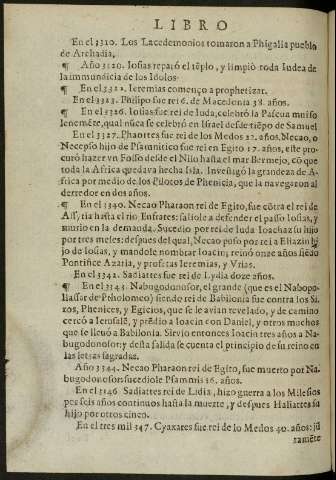 LIBRO
En el 3310. Los Lacedemonios tomaron a Phigalia pueblo
de Archadia,
¶ Año 3320. Iosias reparó el tẽplo, y limpió toda Iudea de
la immundicia de los Idolos.
¶ En el 3322. Ieremias començo a prophetizar.
¶ En el 3323. Philipo fue rei 6. de Macedonia 38. años.
¶ En el 3326. Iosias fue rei de Iuda, celebró la Pascua mui so
lenemẽte, qual nũca se celebró en Israel desde tiẽpo de Samuel
En el 3327. Phaortes fue rei de los Medos 22. años, Necao, o
Necepso hijo de Psamnitico fue rei en Egito 17. años, este pro-
curó hazer vn Fosso desde el Nilo hasta el mar Bermejo, cõ que
toda la Africa quedava hecha Isla. Investigó la grandeza de A-
frica por medio de los Pilotos de Phenicia, que la navegaron al
derredor en dos años.
¶ En el 3340. Necao Pharaon rei de Egito, fue cõtra el rei de
Assyria hasta el rio Enfrates: saliole a defender el passo Iosias, y
murio en la demanda. Sucedio por rei de Iuda Ioachaz su hijo
por tres meses: despues del qual, Necao puso por rei a Eliazin hi
jo de Iosias, y mandole nombrar Ioacin; reinó onze años siẽdo
Pontifice Azaria, y profetas Ieremias, y Vrias.
En el 3342. Sadiattes fue rei de Lydia doze años.
¶ En el 3143. Nabugodonosor, el grande (que es el Nabopo-
llassar de Ptholomeo) siendo rei de Babilonia fue contra los Si-
ros, Phenices, y Egicios, que se le avian revelado, y de camino
cercó a Ierusalẽ, y prẽdio a Ioacin con Daniel, y otros muchos
que se llevó a Babilonia. Sirvio entonces Ioacin tres años a Na-
bugodonosor: y desta salida se cuenta el principio de su reino en
las letras sagradas.
Año 3344. Necao Pharaon rei de Egito, fue muerto por Na-
bugodonosor: sucediole Psammis 16. años.
En el 3146 Sadiattes rei de Lidia, hizo guerra a los Milesios
por seis años continuos hasta la muerte, y despues Haliattes su
hijo por otros cinco.
En el tres mil 347. Cyaxares fue rei de lo Medos 40. años: jũ
tamẽte